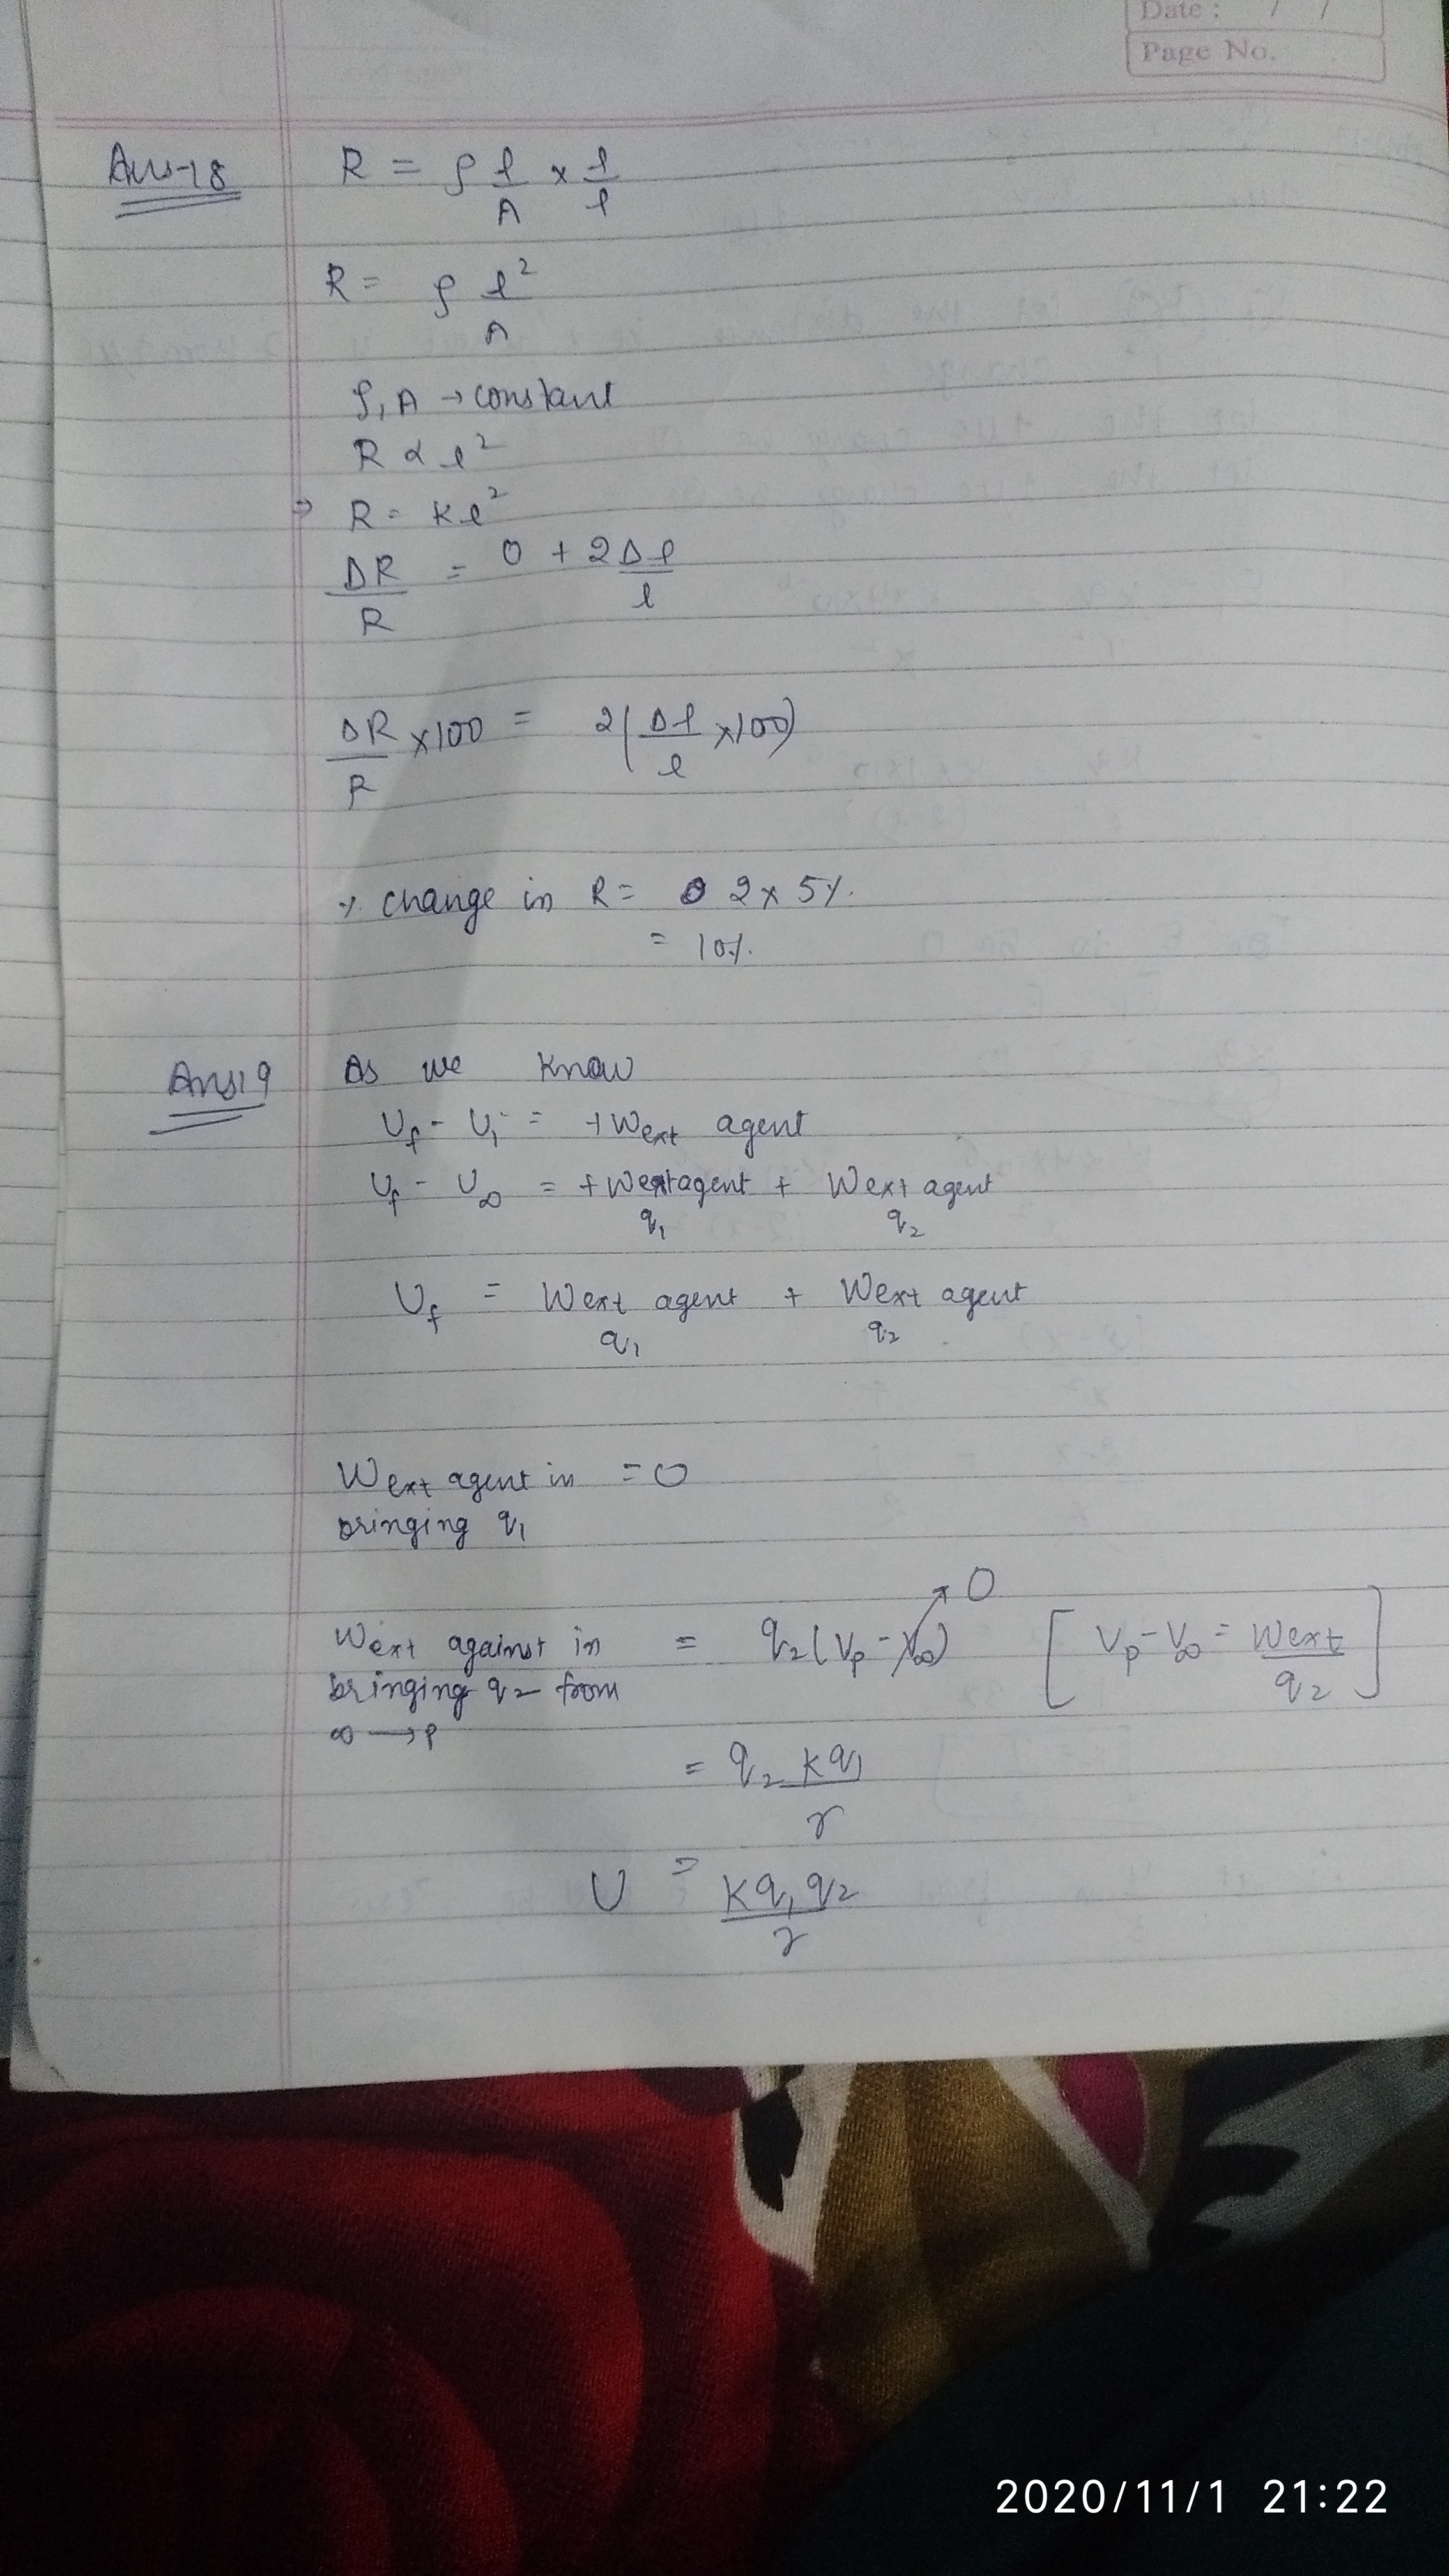 Date : / /
Page No.
Ans-18 R = ρ l/A × l/l
R = ρ l²/A
ρ, A → constant
R α l²
⇒ R = Kl²
ΔR/R = 0 + 2Δl/l
ΔR/R ×100 = 2(Δl/l ×100)
% change in R = 2 × 5%.
= 10%.
Ans19 As we know
Uf - Ui = +Wext agent
Uf - U∞ = +Wext agent q1 + Wext agent q2
Uf = Wext agent q1 + Wext agent q2
Wext agent in = 0
bringing q1
Wext against in = q2(Vp - V∞) → 0 [Vp - V∞ = Wext/q2]
bringing q2 from
∞ → p
= q2 Kq1/r
U = Kq1q2/r
2020/11/1 21:22